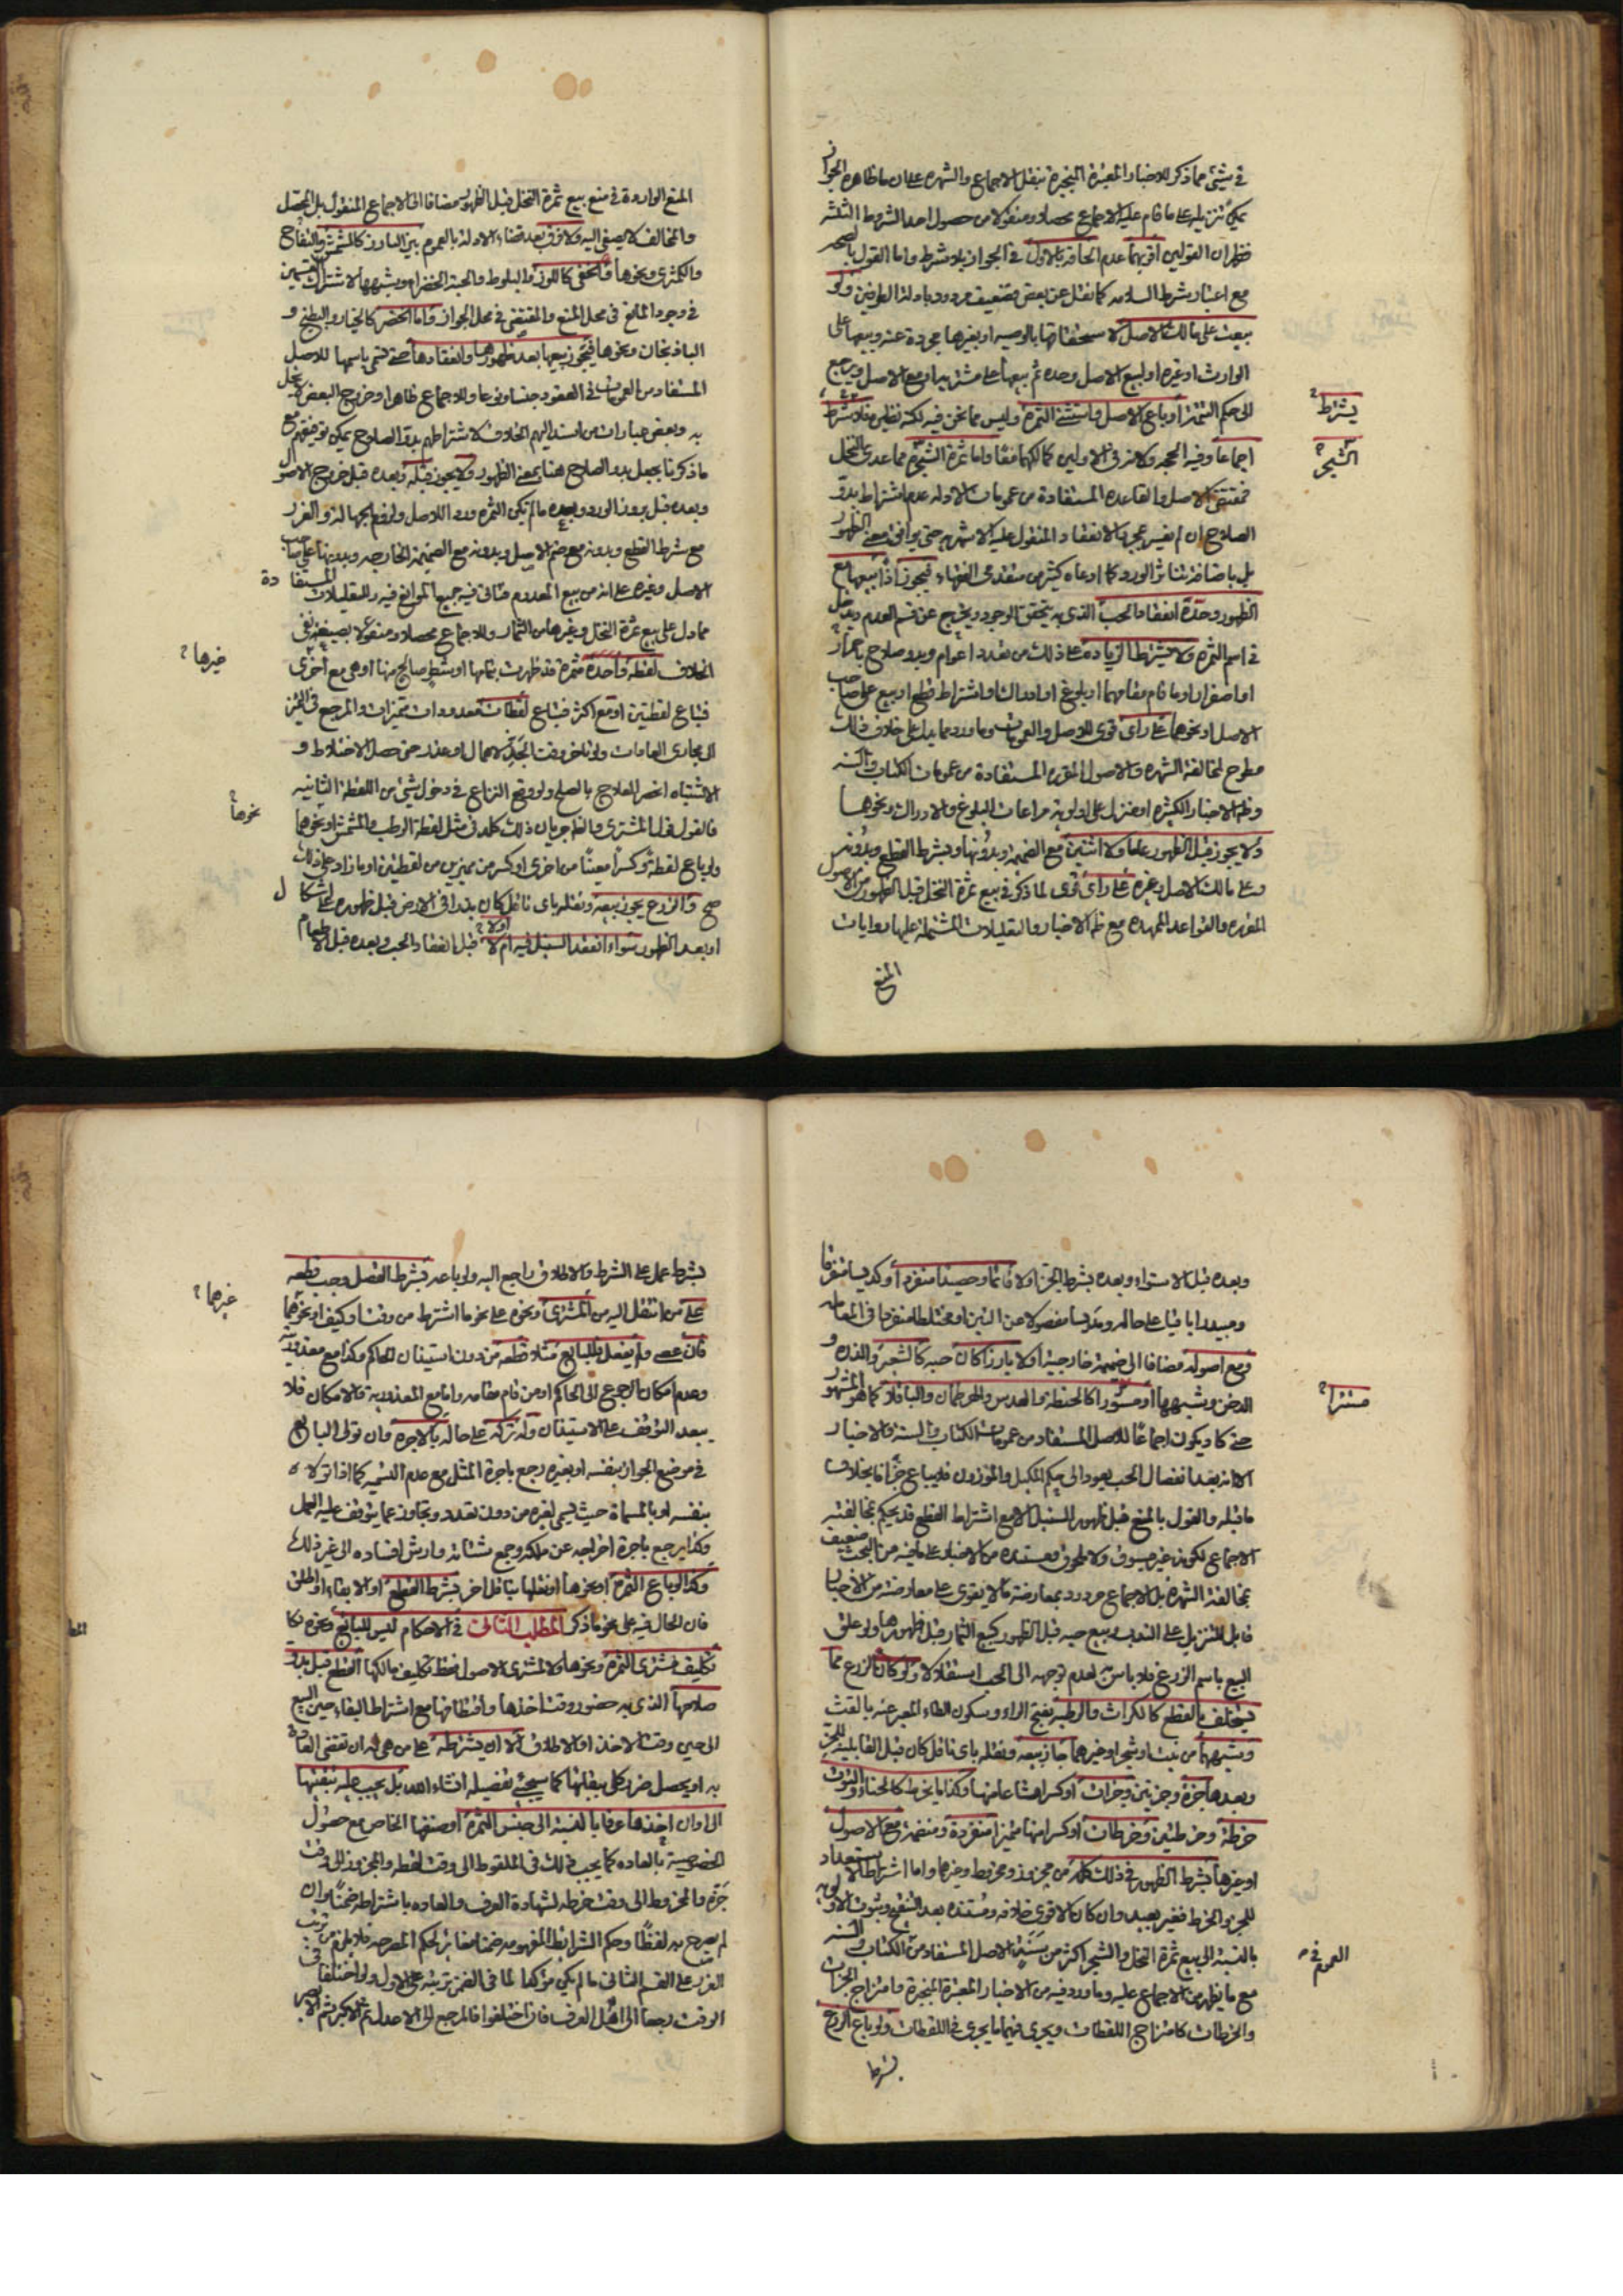 في شيئ مما ذكر للاخبار المعتبرة المنجبرة بنقل الاجماع والشهره على ان ما ظاهره الجواز
يمكن تنزيله على ما قام عليه الاجماع محصلا ومنقولا من حصول احد الشروط الثلثه
فظهر ان القولين اقربهما عدم الحاقه بالاول في الجواز بلا شرط واما القول بالصحه
مع اعتبار شرط السلامه كما نقل عن بعض فضعيف مردود بادلة الطرفين ولو
بيعت على مالك الاصل لا ستحقاقها بالوصيه او بغيرها مجردة عنه وبيعها على
الوارث او غيره او لبيع الاصل وحده ثم بيعها على مشتريه او مع الاصل ويرجع
الى حكم التتمة او باع الاصل واستثنى الثمرة وليس مما نحن فيه لكنه نظير فلا شرط
يشترط
اجماعا وفيه الحجه في الاولين كما واما ثمرة الشجره مما عدى النخل
الشجر
فمقتضى الاصل والقاعده المستفادة من عمومات الادله عدم اشتراط بدو
الصلاح ان لم نفسر بمجرد الانعقاد المنقول عليه الاشهر حتى يوافق معنى الظهور
بل باضافة تناثر الورد كما ادعاه كثير من متقدمي الفقهاء فيجوز اذا بيعها مع
الظهور وحده انعقاد الحب الذي به يتحقق الوجود ويخرج عن قسم العدم ويدخل
في اسم الثمره ولا يشترط الزيادة على ذلك من تعدد اعوام وبدو صلاح باحمرار
او اصفرار او ما قام مقامهما او بلوغ او ادراك او اشتراط قطع او بيع على صاحب
الاصل او نحوهما على رأى قوى للاصل والعمومات وما ورد مما يدل على خلاف ذلك
مطرح لمخالفة الشهره والاصول المقرره المستفادة من عمومات الكتاب والسنه
وظه الاخبار الكثيره او منزل على اولوية مراعات البلوغ والادراك ونحوهما
ولا يجوز قبل الظهور عاما ولا اثنين مع الضميمه وبدونها وبشرط القطع وبدونه
وعلى مالك الاصل وغيره على رأى قوى لما ذكر في بيع ثمرة النخل قبل الظهور من الاصول
المقرره والقواعد الممهده مع ظه الاخبار والتعليلات المشتمله عليها روايات
المنع
المنع الواردة في منع بيع ثمرة النخل قبل الظهور مضافا الى الاجماع المنقول بل المحصل
والمخالف لا يصغى اليه ولا فرق بعد قضاء الادلة بالعموم بين البارز كالمشمش والتفاح
والكمثرى ونحوها والخفى كاللوز والبلوط والحبة الخضراء وشبهها لاشتراك القسمين
في وجود المانع في محل المنع والمقتضى في محل الجواز واما الخضر كالخيار والبطيخ و
الباذنجان ونحوها فيجوز بيعها بعد ظهورها وانعقادها حتى تسمى باسمها للاصل
المستفاد من العمومات في العقود جنسا ونوعا وللاجماع ظاهرا وخروج البعض لا يخل
به وبعض عبارات من اسند اليهم الخلاف لاشتراطهم بدو الصلاح يمكن توفيقهم مع
ما ذكرنا بجعل بدو الصلاح هنا بمعنى الظهور ولا يجوز قبله وبعده قبل خروج الاصول
وبعده قبل بروز الورد وبعده ما لم تكن الثمره وردا للاصل ولزوم الجهالة والغرر
مع شرط القطع وبدونه مع ضم الاصل وبدونه مع الضميمه الخارجيه وبدونها على صاحب
الاصل وغيره على انه من بيع المعدوم فتأتي فيه جميع الموانع فيه والتعليلات المستفادة
مما دل على بيع ثمرة النخل وغيرها من الثمار وللاجماع محصلا ومنقولا بصيغة نفى
الخلاف لقطه واحدة فثمرة قد ظهرت بتمامها او شطر صالح منها او هي مع اخرى
غيرها
فتباع لقطتين او مع اكثر فتباع لقطات معدودات متميزات والمرجع في الميز
الى مجارى العادات ولو تأخر وقت الجذ لاهمال او عذر حتى حصل الاختلاط و
الاشتباه انحصر العلاج بالصلح ولو وقع النزاع في دخول شيئ من اللقطة الثانيه
نحوها
فالقول قول المشترى والظ جريان ذلك كله في مثل لقطة الرطب والمشمش او نحوهما
ولو باع لقطة وكسرا معينا من اخرى او كسرين مميزين من لقطتين او ما زاد على ذلك
صح والزرع يجوز بيعه ونقله باى ناقل كان بذرا في الارض قبل ظهوره على اشكال
او بعد الظهور سواء انعقد السنبل فيه ام لا قبل انعقاد الحب وبعده قبل الاطعام
اولا
وبعده قبل الاستواء وبعده بشرط الجز اولا قائما وحصيدا منفردا او كديسا متفرقا
ومبيدرا باقيا على حاله ومدوسا مفصولا عن التبن او مختلطا منفردا في المعامله
ومع اصوله مضافا الى ضميمة خارجية اولا بارزا كان حبه كالشعير والذره و
الدخن وشبهها او مستورا كالحنطة والعدس والهرطمان والباقلا كما هو المشهور
مستترا
حتى كاد يكون اجماعا للاصل المستفاد من عمومات الكتاب والسنة والاخبار
الا انه بعد انفصال الحب يعود الى حكم المكيل والموزون فلا يباع جزافا بخلاف
ما قبله والقول بالمنع قبل ظهور السنبل الا مع اشتراط القطع قد يحكم بمخالفته
الاجماع لكونه غير مسبوق ولا ملحوق ومستنده من الاخبار على ما فيه من البحث ضعيف
بمخالفة الشهره بل الاجماع مردود بمعارضة ما لا يقوى على معارضته من الاخبار
قابل للتنزيل على الندب وبيع حبه قبل الظهور كبيع الثمار قبل ظهورها ولو علق
البيع باسم الزرع فلا باس به لعدم توجهه الى الحب استقلالا ولو كان الزرع مما
يستخلف بالقطع كالكراث والرطبه بفتح الراء وسكون الطاء المعبر عنه بالقت
وشبههما من نبت او شجر او غيرهما جاز بيعه ونقله باى ناقل كان قبل القابلية للجز
وبعدها جزة وجزتين وجزات او كسرا مشاعا منها وكذا ما يخرط كالحناء والتوت
خرطة وخرطتين وخرطات او كسرا منها متميزا منفردة ومنضمة مع الاصول
او غيرها بشرط الظهور في ذلك كله من مجزوز ومخروط وغيرهما واما اشتراط الاستعداد
للجز والخرط فغير بعيد وان كان الاقوى خلافه ومستنده بعد التتبع وثبوت الاولويه
بالنسبة الى بيع ثمرة النخل والشجر اكثر من سنة الاصل المستفاد من الكتاب والسنه
العموم في
مع ما يظهر من الاجماع عليه وما ورد فيه من الاخبار المعتبرة المنجبرة وامتزاج الجزات
والخرطات كامتزاج اللقطات ويجرى فيهما ما يجرى في اللقطات ولو باع الزرع
بشرط
بشرط عمل على الشرط والاطلاق راجع اليه ولو باعه بشرط الفصل وجب قطعه
على من انتقل اليه من المشترى ونحوه على نحو ما اشترط من وقت او كيف او نحوهما
غيرها
فان عصى ولم يفعل فللبايع مثلا قطعه من دون استيذان الحاكم وكذا مع معذوريته
وعدم امكان الرجوع الى الحاكم او من قام مقامه واما مع المعذورية والامكان فلا
يبعد التوقف على الاستيذان وله تركه على حاله بالاجرة وان تولى البايع
في موضع الجواز بنفسه او بغيره رجع باجرة المثل مع عدم التسميه كما اذا تولاه
بنفسه او بالمسماة حيث يسمى لغيره من دون تعدد وتجاوز عما يتوقف عليه العمل
وكذا يرجع باجرة اخراجه عن ملكه وجمع شتاته وارش افساده الى غير ذلك
وكذا لو باع الثمرة او نحوها او نقلها بناقل اخر بشرط القطع او الابقاء او اطلق
فان الحال فيه على نحو ما ذكر المطلب الثاني في الاحكام ليس للبايع ونحوه
تكليف مشترى الثمرة ونحوها ولا لمشترى الاصول فقط تكليف مالكها القطع قبل بدو
صلاحها الذى به حضور وقت اخذها واقتطافها مع اشتراط البقاء حين البيع
الى حين وقت الاخذ او الاطلاق الا ان يشترطه على من هي له او تقضى العادة
به او يحصل ضرر كلى ببقائها كما سيجئ تفصيله انشاء الله بل يجب عليه تبقيتها
الى اوان اخذها عرفا بالنسبة الى جنس الثمرة او صنفها الخاص مع حصول
الخصوصية بالعاده كما يجب ذلك في الملقوط الى وقت لقطه والمجزوز الى وقت
جزه والمخروط الى وقت خرطه لشهادة العرف والعاده باشتراطه ضمنا وان
لم يصرح به لفظا وحكم الشرائط المفهومه ضمنا مغاير لحكم المصرحه فلا يلزم من ترتب
الغرر على القسم الثاني ما لم يكن مؤكدا لما في الضمن ترتبه على الاول ولو اختلفا في
الوقت رجعا الى اهل العرف فان اختلفوا فالمرجع الى الاعدل ثم الاكبر ثم الابصر